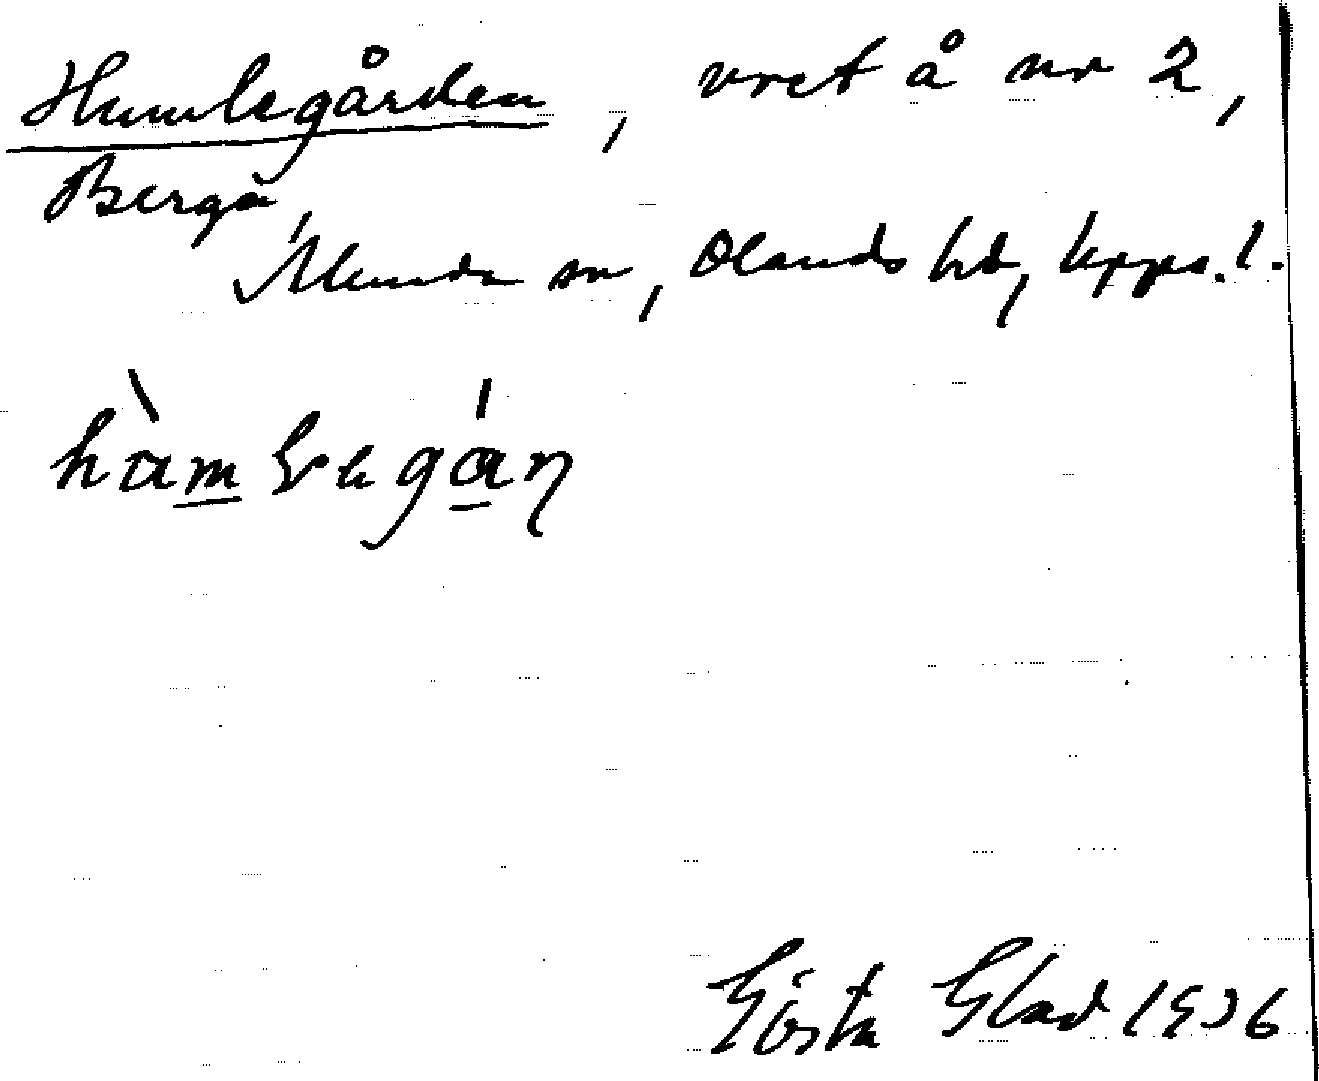 Humlegården, vret å nr 2,
Berga,
Alunda sn, Olands hd, Upps. l.
Gösta Glad 1936